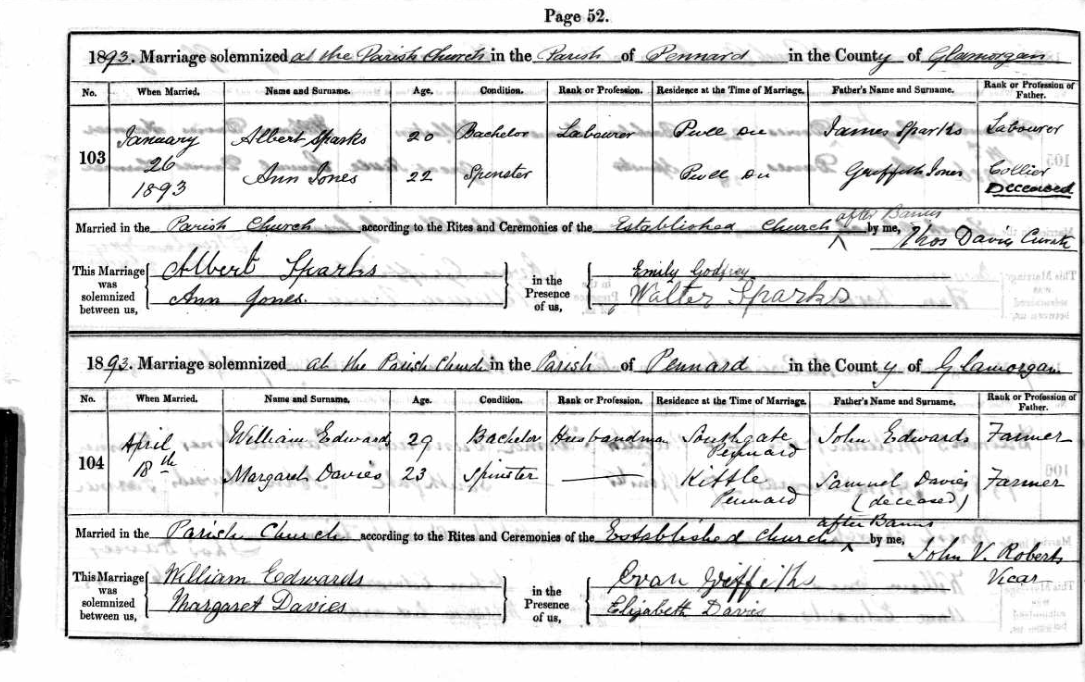 Page 52.
1893. Marriage solemnized at the Parish Church in the Parish of Pennard in the County of Glamorgan
No. When Married. Name and Surname. Age. Condition. Rank or Profession. Residence at the Time of Marriage. Father's Name and Surname. Rank or Profession of Father.
103 January 26 1893 Albert Sparks 20 Bachelor Labourer Pwll Du James Sparks Labourer
Ann Jones 22 Spinster Pwll Du Griffith Jones Collier Deceased
Married in the Parish Church according to the Rites and Ceremonies of the Established Church after Banns by me, Thos Davies Curate
This Marriage was solemnized between us, Albert Sparks in the Presence of us, Emily Godfrey
Ann Jones. Walter Sparks
1893. Marriage solemnized at the Parish Church in the Parish of Pennard in the County of Glamorgan
No. When Married. Name and Surname. Age. Condition. Rank or Profession. Residence at the Time of Marriage. Father's Name and Surname. Rank or Profession of Father.
104 April 18th William Edwards 29 Bachelor Husbandman Southgate Pennard John Edwards Farmer
Margaret Davies 23 Spinster Kittle Pennard Samuel Davies (deceased) Farmer
Married in the Parish Church according to the Rites and Ceremonies of the Established Church after Banns by me, John V. Roberts Vicar
This Marriage was solemnized between us, William Edwards in the Presence of us, Evan Griffith
Margaret Davies Elizabeth Davis